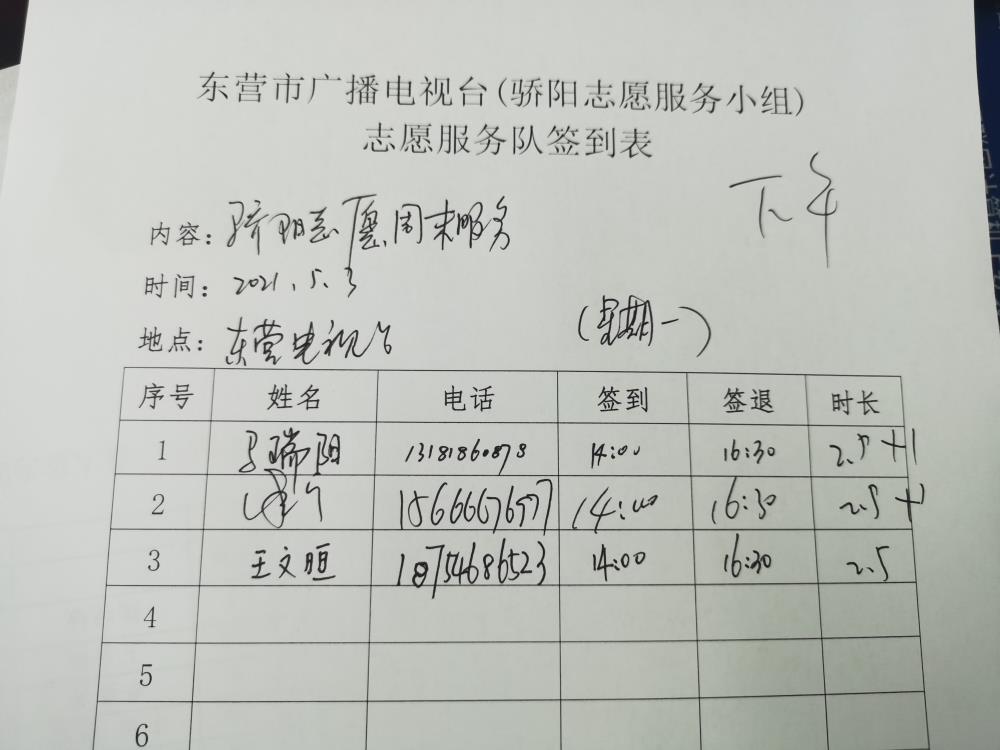 东营市广播电视台(骄阳志愿服务小组)
志愿服务队签到表
下午
内容：骄阳志愿周末服务
时间：2021.5.3
地点：东营电视台
(星期一)
序号 姓名 电话 签到 签退 时长
1 马瑞阳 13181860878 14:00 16:30 2.5 +1
2 15666676977 14:00 16:30 2.5 +1
3 王文恒 18754686523 14:00 16:30 2.5
4
5
6